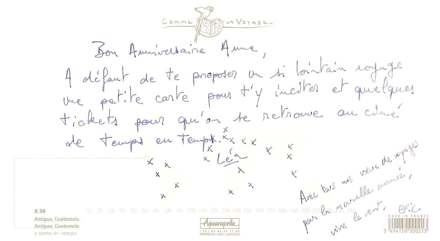 Comme un Voyage
Bon Anniversaire Anne,
A défaut de te proposer un si lointain voyage
une petite carte pour t'y inciter et quelques
tickets pour qu'on se retrouve au ciné
de temps en temps.
Léa
Avec tous mes voeux de
par la nouvelle année,
vive le
Antigua, Guatemala
Antigua, Guatemala
Aquarupella